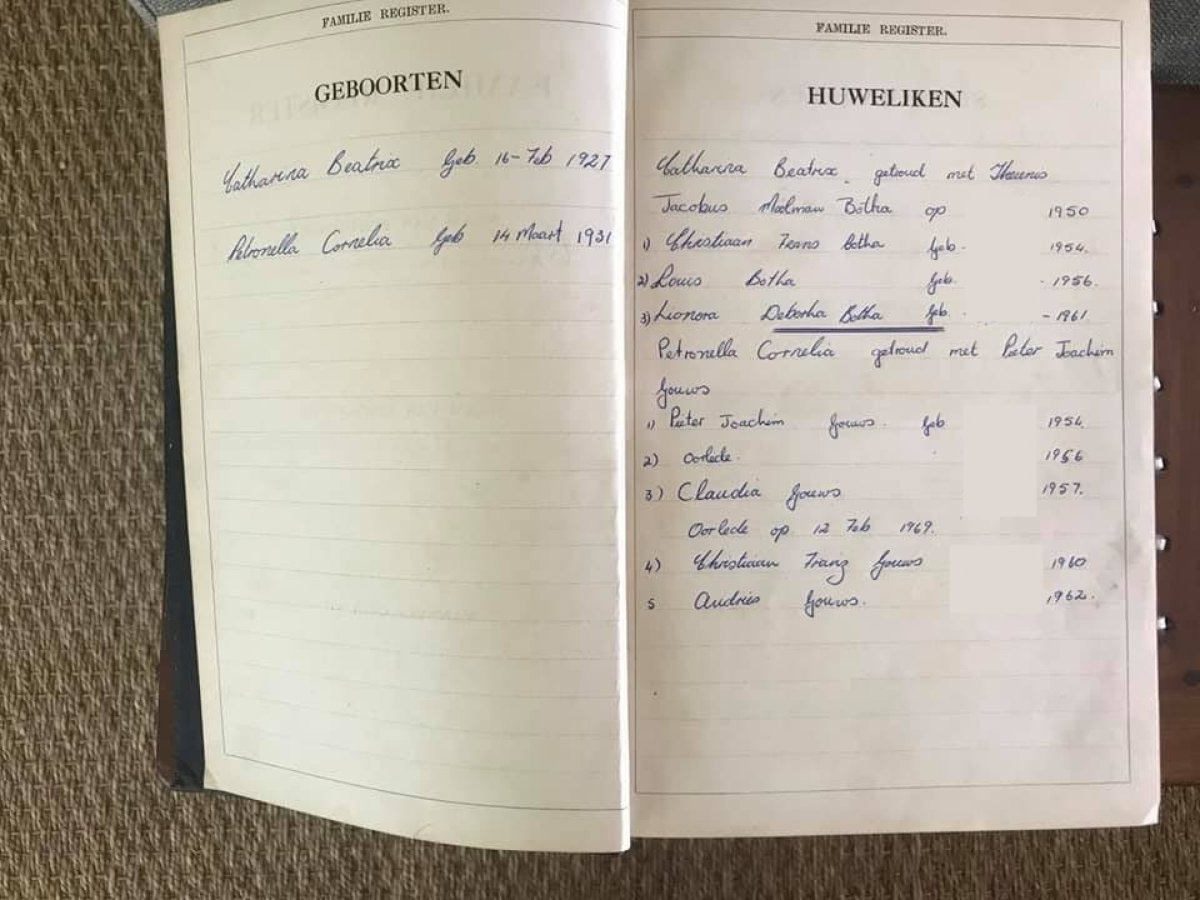 FAMILIE REGISTER.
GEBOORTEN
Catharina Beatrix Geb. 16-Feb 1927
Petronella Cornelia Geb 14 Maart 1931
FAMILIE REGISTER.
HUWELIKEN
Catharina Beatrix. getroud met Theunis
Jacobus Botha op 1950
1) Christiaan Frans Botha Geb. 1954.
2) Louis Botha Geb. - 1956.
3) Lionora Deborha Botha Geb. - 1961.
Petronella Cornelia getroud met Pieter Joachim
Gouws
1) Pieter Joachim Gouws. Geb 1954.
2) Oorlede. 1956
3) Claudia Gouws 1957.
Oorlede op 12 Feb 1969.
4) Christiaan Franz Gouws 1960
5 Andries Gouws. 1962.